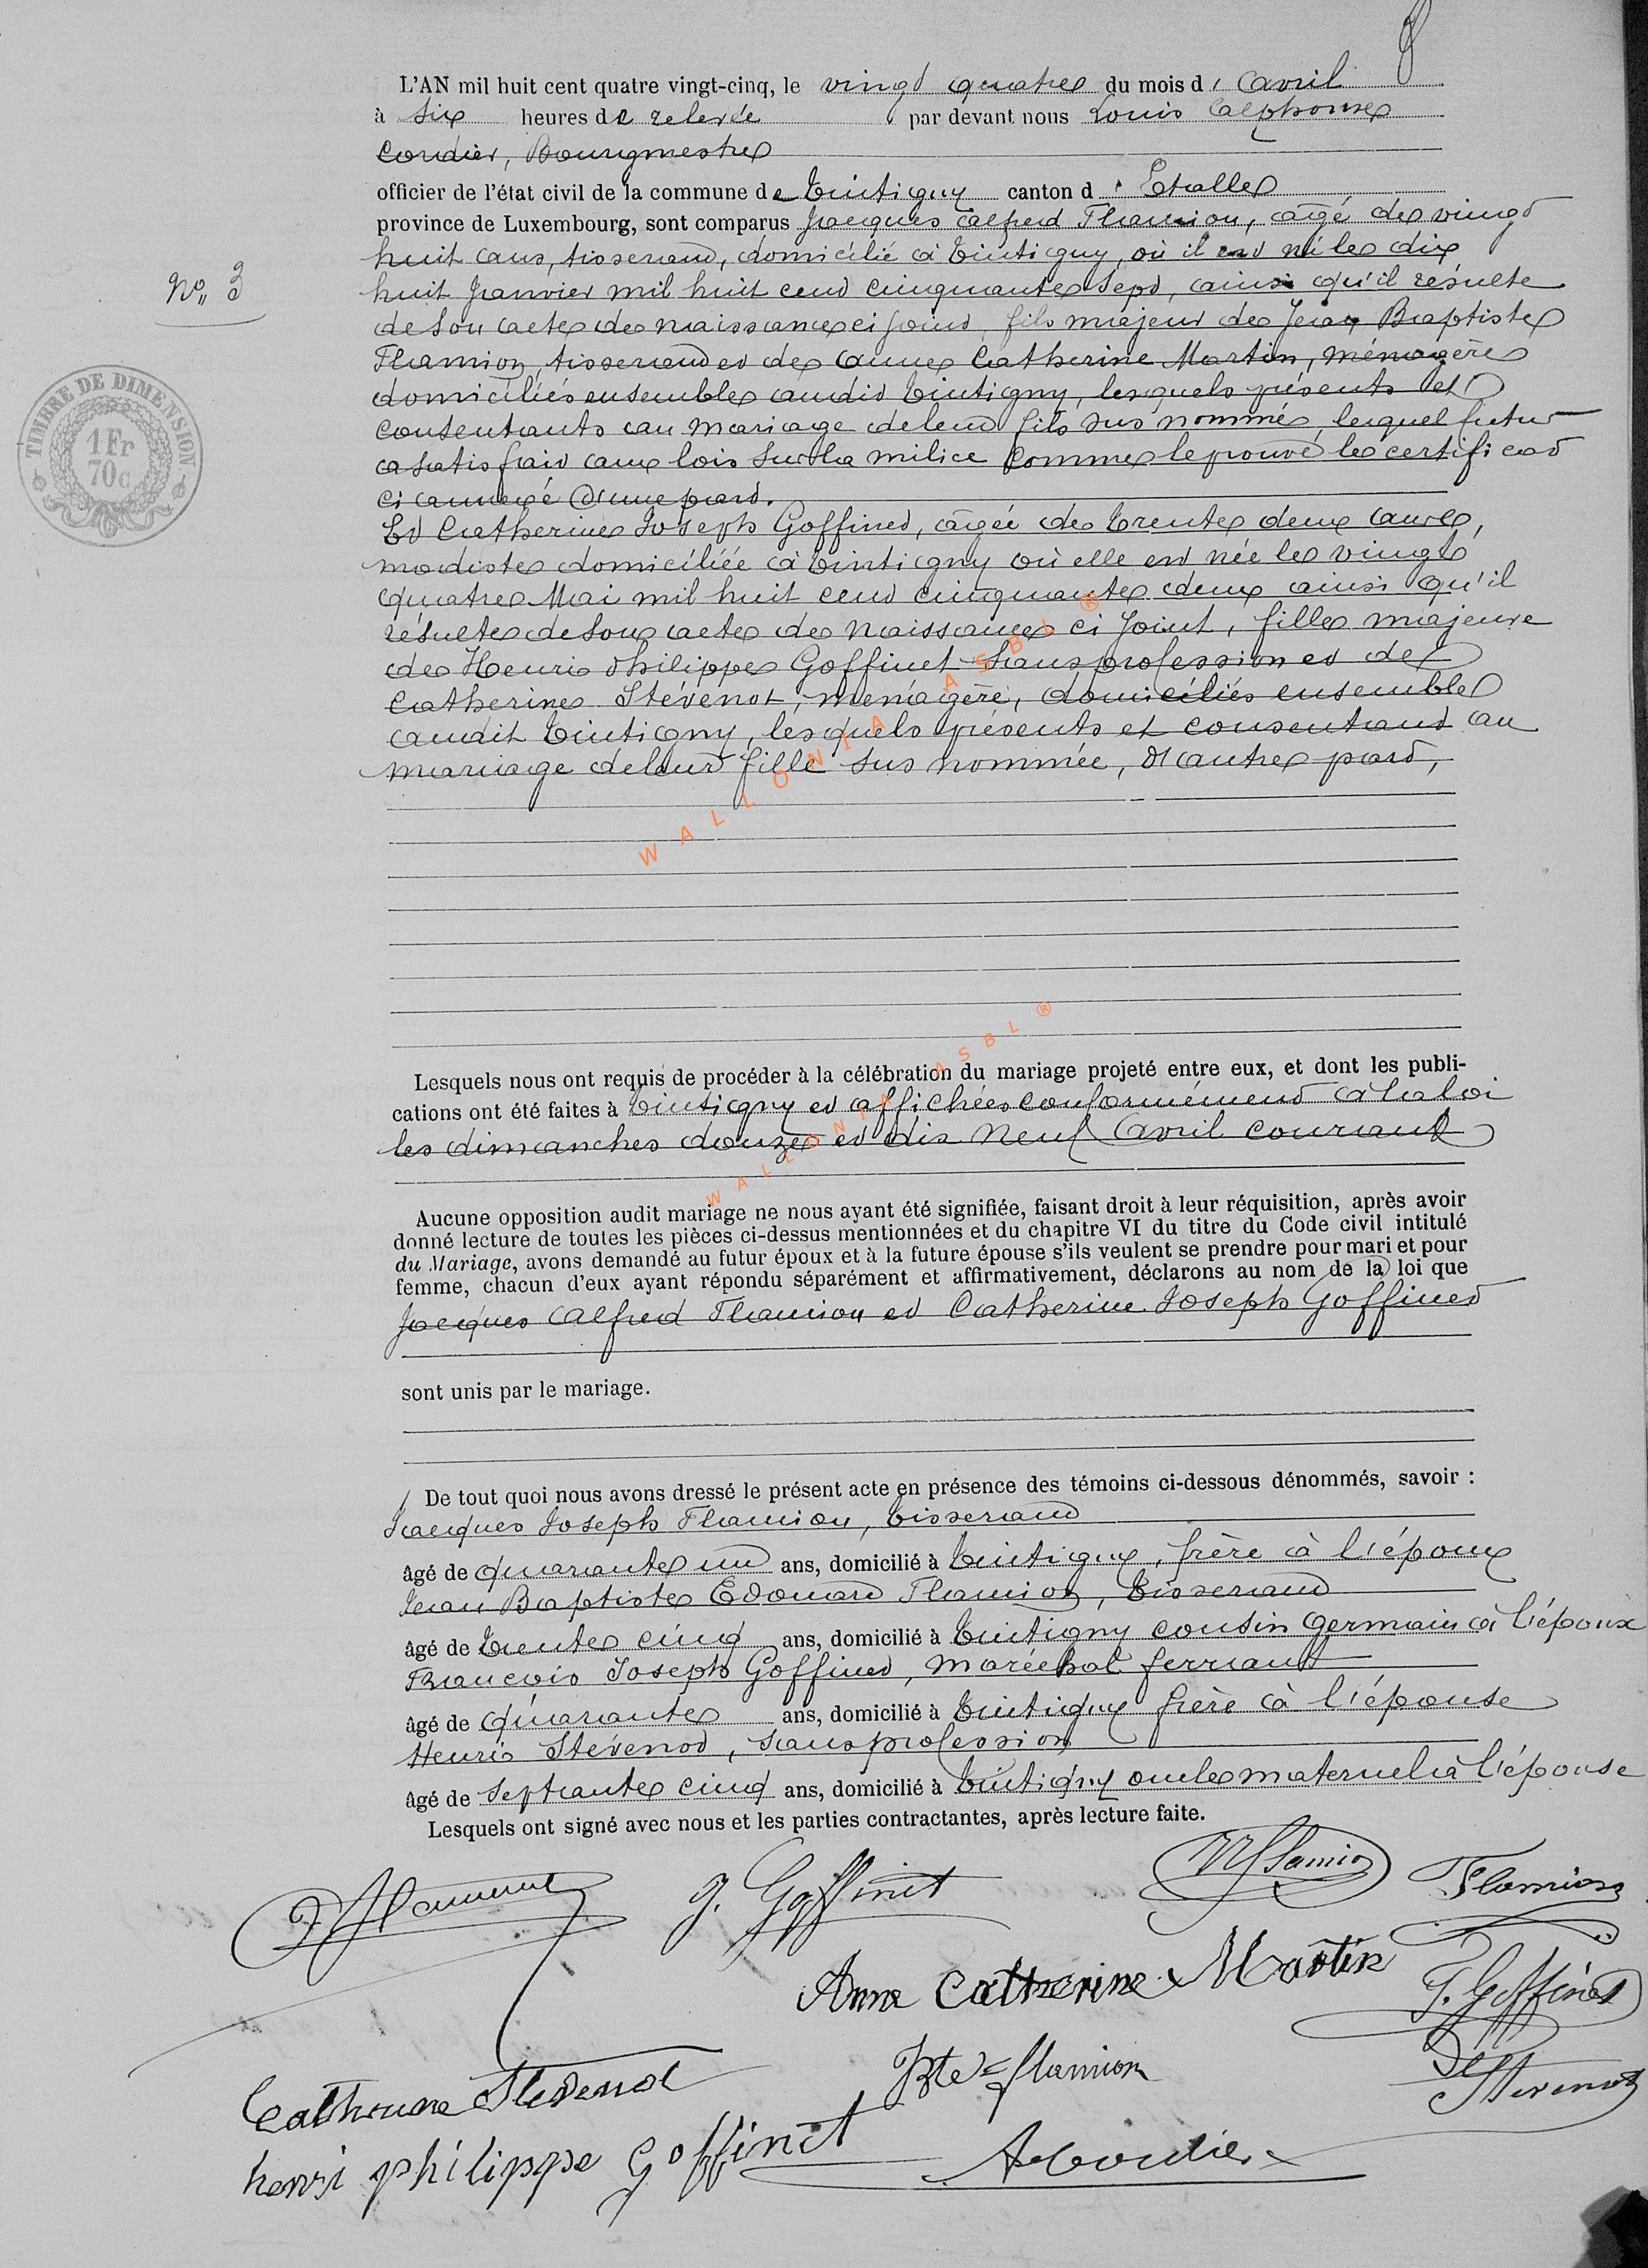 L'AN mil huit cent quatre vingt-cinq, le vingt quatre du mois d' avril
à six heures de relevée par devant nous Louis Alphonse
Cordier, Bourgmestre
officier de l'état civil de la commune de Tintigny canton d' Etalle
province de Luxembourg, sont comparus Jacques Alfred Flamion, âgé de vingt
huit ans, tisserand, domicilié à Tintigny, où il est né le dix
huit Janvier mil huit cent cinquante sept, ainsi qu'il résulte
de son acte de naissance ci joint, fils majeur de Jean Baptiste
Flamion, tisserand et de Anne Catherine Martin, ménagère
domiciliés ensemble audit Tintigny, lesquels présents et
consentants au mariage de leur fils sus nommé, lequel futur
a satisfait aux lois sur la milice comme le prouve le certificat
ci annexé d'une part.
Et Catherine Joseph Goffinet, âgée de trente deux ans,
modiste domiciliée à Tintigny où elle est née le vingt
quatre Mai mil huit cent cinquante deux ainsi qu'il
résulte de son acte de naissance ci joint, fille majeure
de Henri Philippe Goffinet sans profession et de
Catherine Stévenot, ménagère, domiciliés ensemble
audit Tintigny, lesquels présents et consentant au
mariage de leur fille sus nommée, d'autre part,
N° 3
TIMBRE DE DIMENSION
1 Fr
70c
WALLONIA ASBL ®
Lesquels nous ont requis de procéder à la célébration du mariage projeté entre eux, et dont les publi-
cations ont été faites à Tintigny et affichées conformément à la loi
les dimanches douze et dix neuf avril courant
WALLONIA ASBL ®
Aucune opposition audit mariage ne nous ayant été signifiée, faisant droit à leur réquisition, après avoir
donné lecture de toutes les pièces ci-dessus mentionnées et du chapitre VI du titre du Code civil intitulé
du Mariage, avons demandé au futur époux et à la future épouse s'ils veulent se prendre pour mari et pour
femme, chacun d'eux ayant répondu séparément et affirmativement, déclarons au nom de la loi que
Jacques Alfred Flamion et Catherine Joseph Goffinet
sont unis par le mariage.
De tout quoi nous avons dressé le présent acte en présence des témoins ci-dessous dénommés, savoir :
Jacques Joseph Flamion, tisserand
âgé de quarante un ans, domicilié à Tintigny, frère à l'époux
Jean Baptiste Edouard Flamion, tisserand
âgé de trente cinq ans, domicilié à Tintigny cousin germain à l'époux
François Joseph Goffinet, maréchal ferrant
âgé de quarante ans, domicilié à Tintigny frère à l'épouse
Henri Stévenot, sans profession
âgé de septante cinq ans, domicilié à Tintigny oncle maternel à l'épouse
Lesquels ont signé avec nous et les parties contractantes, après lecture faite.
J. Goffinet
Flamion
Anne Catherine Martin
Goffinet
Bte flamion
Stevenot
Catherine Stevenot
henri philippe Goffinet
A Cordier